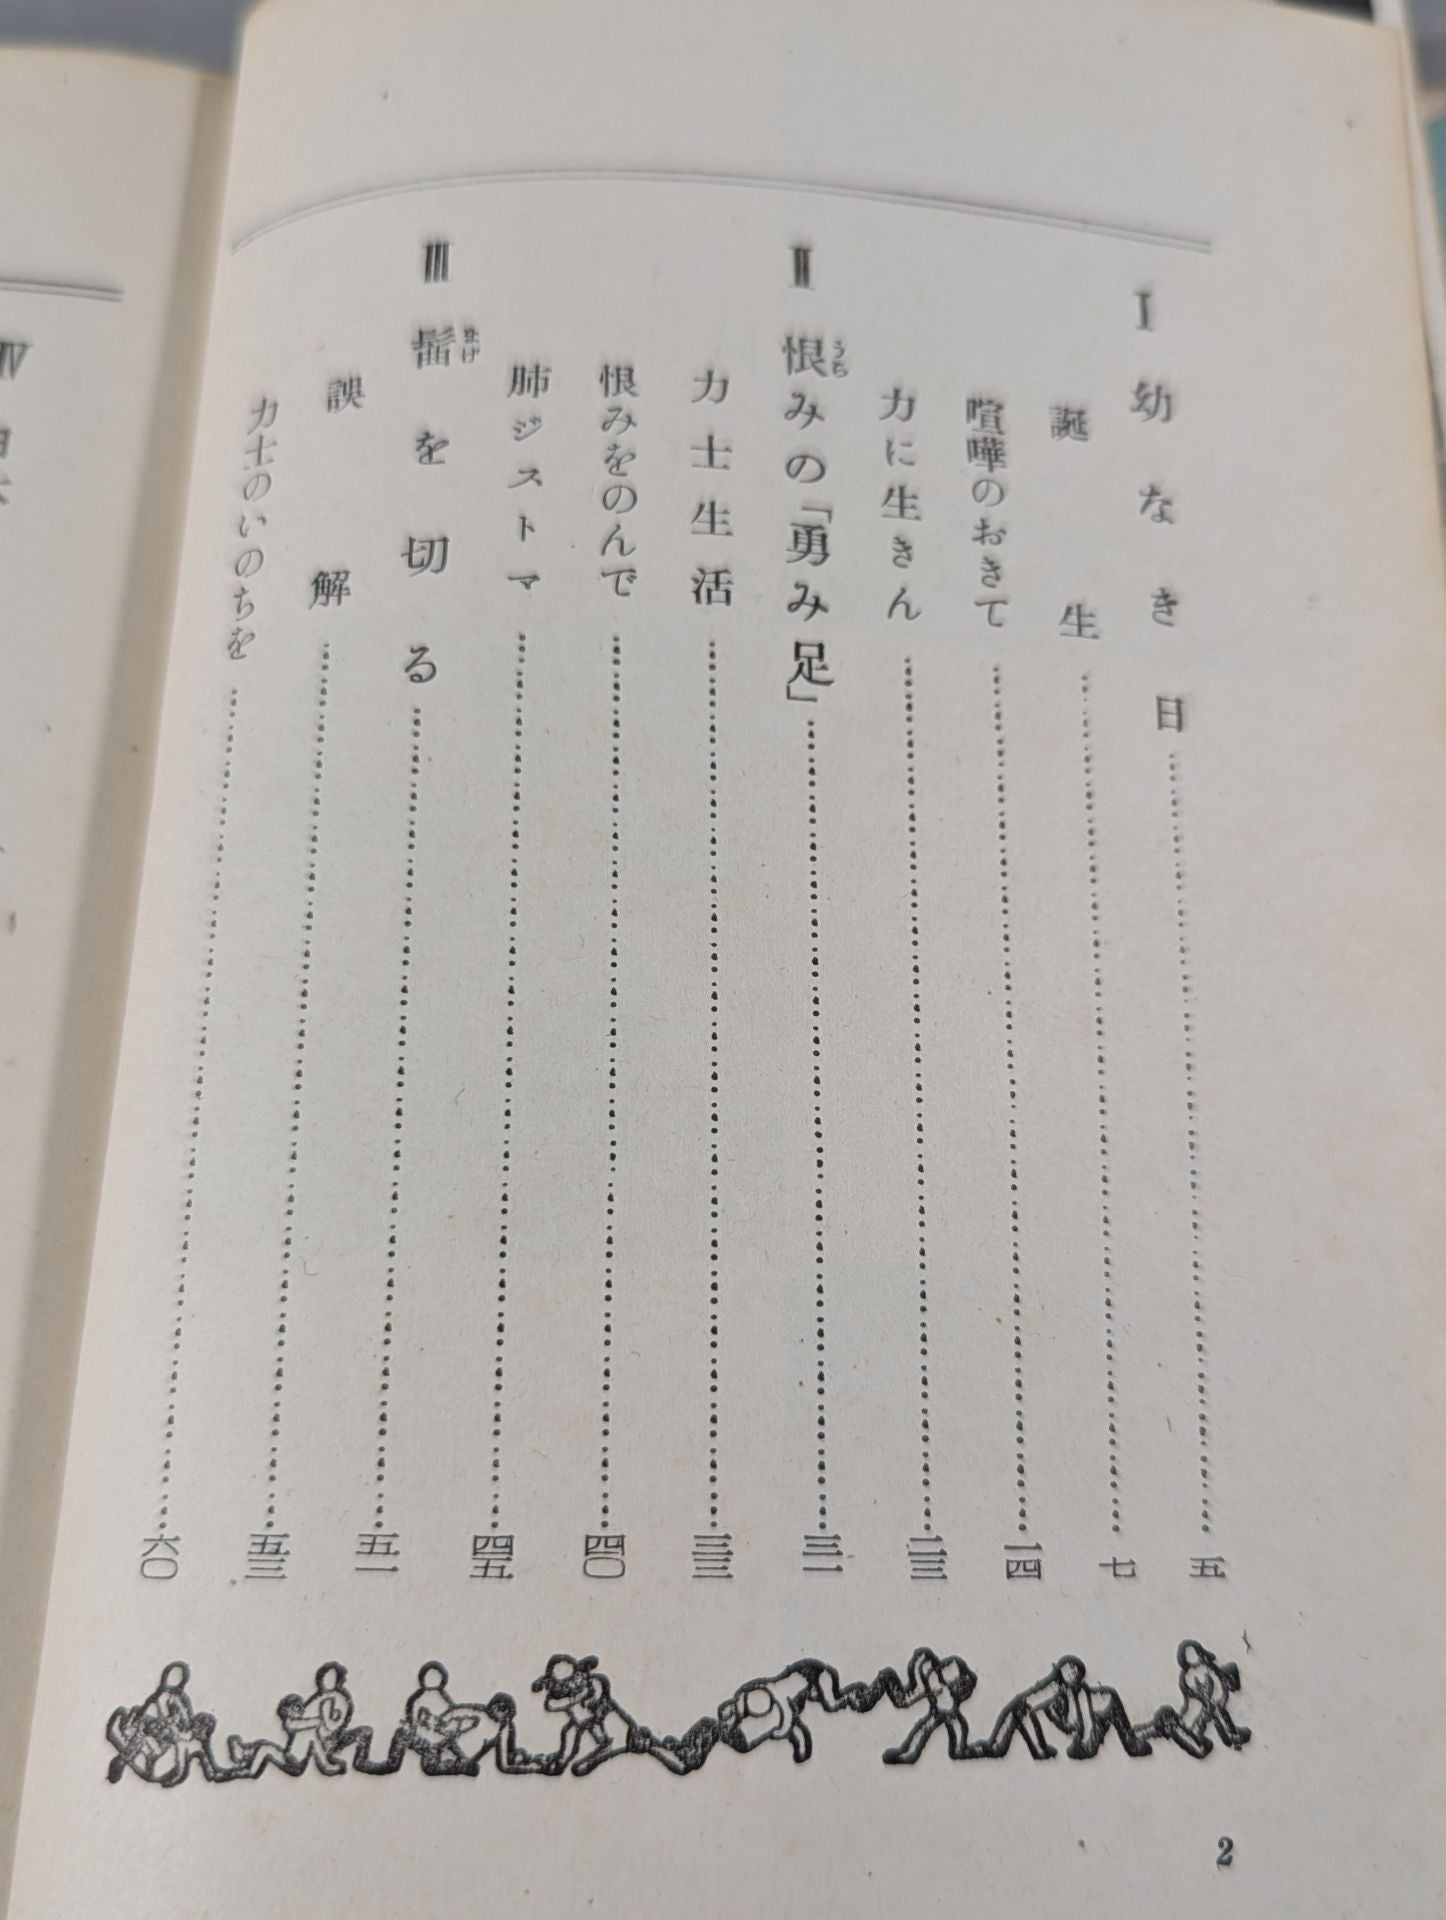 I 幼なき日……五
誕生……七
喧嘩のおきて……一四
力に生きん……二三
II 恨みの「勇み足」……三一
うら
力士生活……三三
恨みをのんで……四〇
肺ジストマ……四五
III 髷を切る……五一
まげ
誤解……五三
力士のいのちを……六〇
2
IV